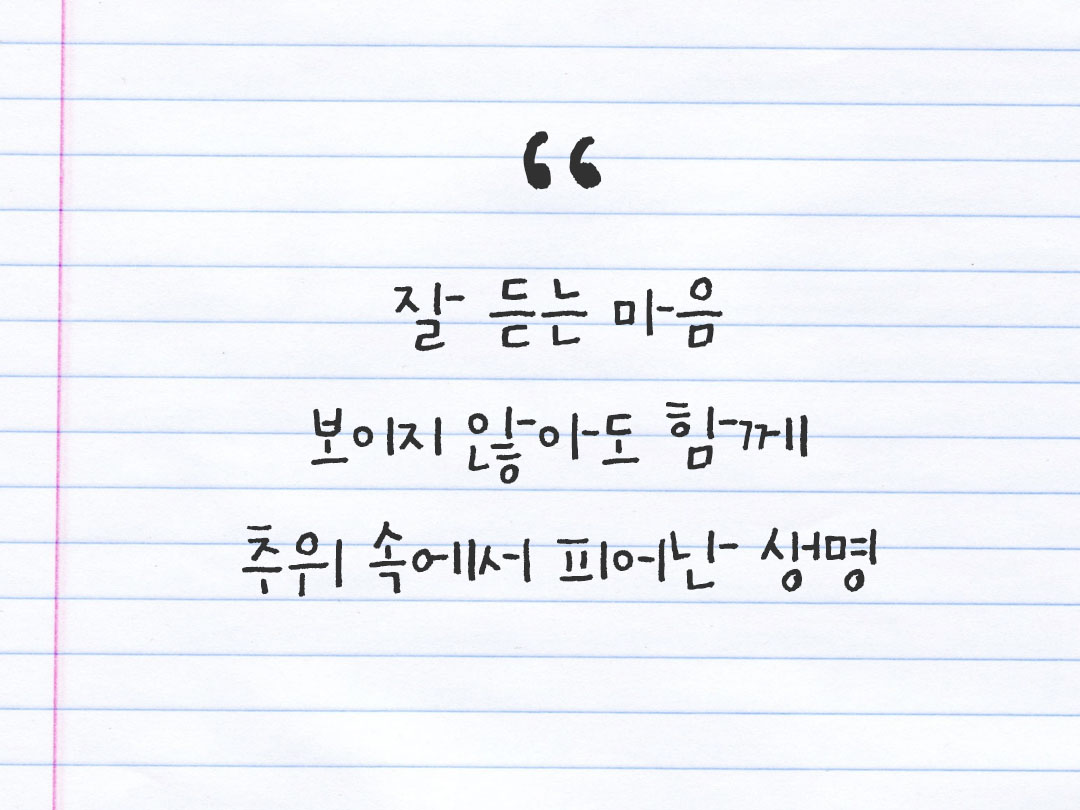 “
잘 듣는 마음
보이지 않아도 함께
추위 속에서 피어난 생명